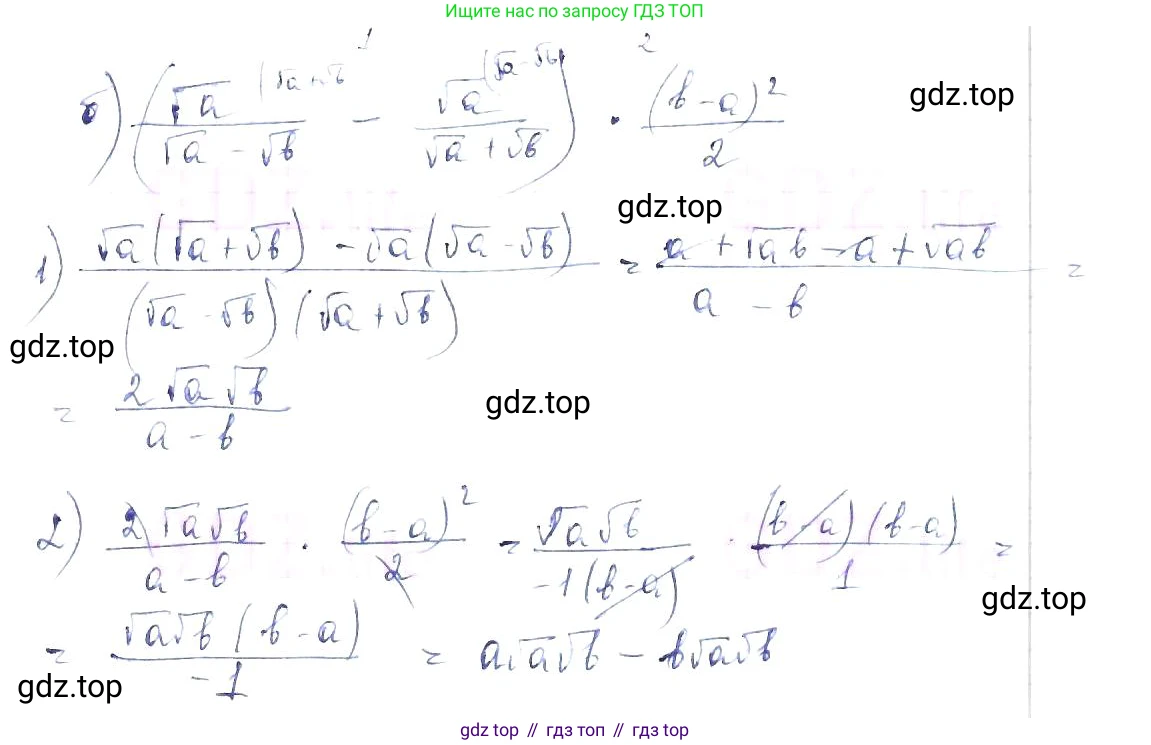 Ищите нас по запросу ГДЗ ТОП
1 2
б) (√a (√a+√b / √a - √b - √a (√a-√b) / √a + √b) · (b-a)² / 2
gdz.top
gdz.top
1) √a(√a+√b) - √a(√a-√b) / (√a-√b)(√a+√b) = a+√ab-a+√ab / a-b =
gdz.top
= 2√a√b / a-b
gdz.top
2) 2√a√b / a-b · (b-a)² / 2 = √a√b / -1(b-a) · (b-a)(b-a) / 1 =
gdz.top
= √a√b(b-a) / -1 = a√a√b - b√a√b
gdz.top
gdz top // гдз топ // гдз top